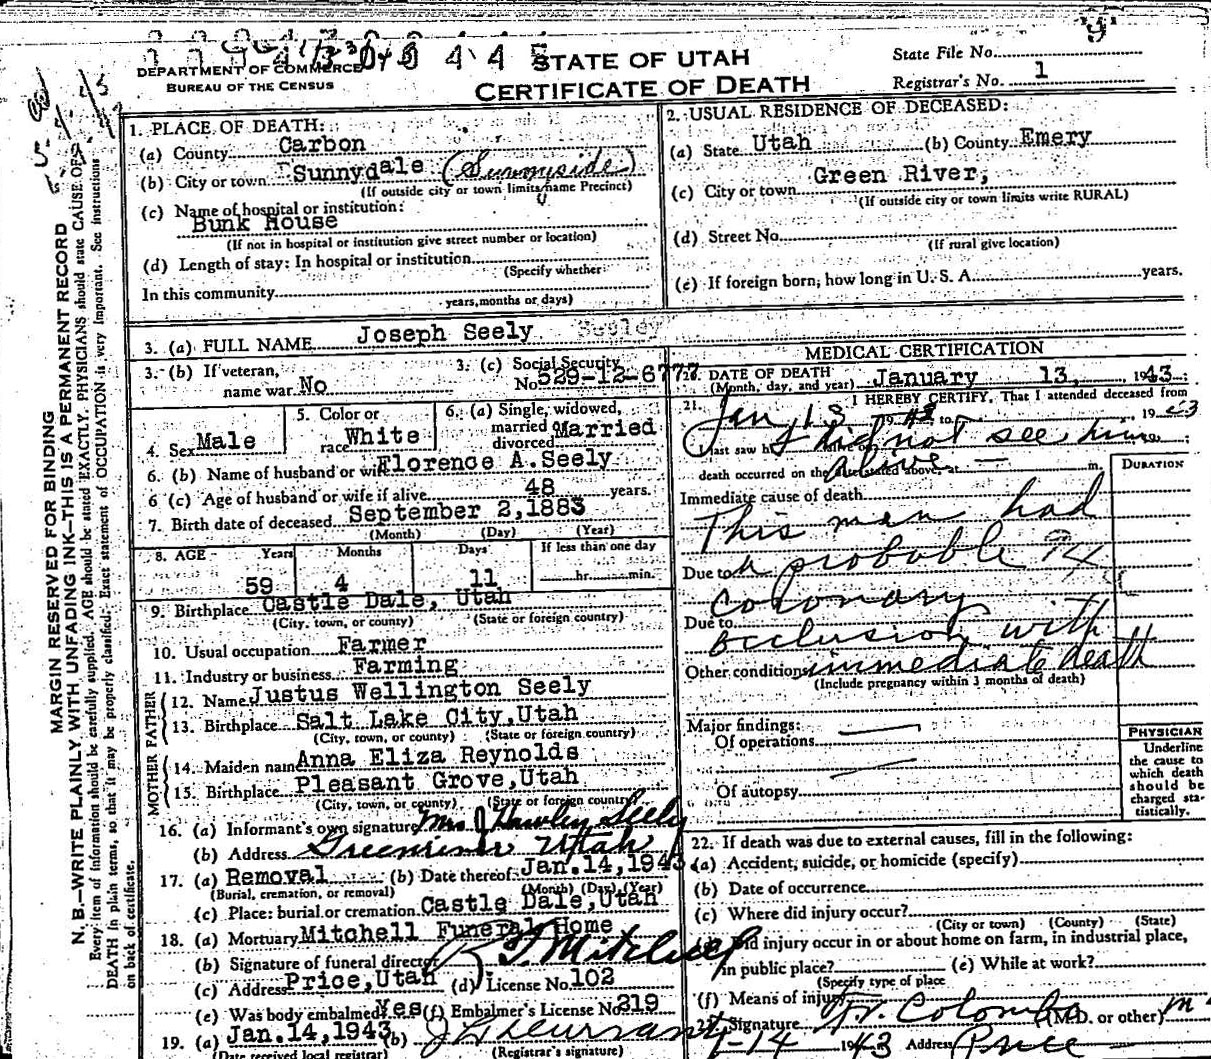 STATE OF UTAH
CERTIFICATE OF DEATH
DEPARTMENT OF COMMERCE
BUREAU OF THE CENSUS
State File No.
Registrar's No. 1
MARGIN RESERVED FOR BINDING
N. B.—WRITE PLAINLY WITH UNFADING INK—THIS IS A PERMANENT RECORD
Every item of information should be carefully supplied. AGE should be stated EXACTLY. PHYSICIANS should state CAUSE OF
DEATH in plain terms, so that it may be properly classified. Exact statement of OCCUPATION is very important. See instructions
on back of certificate.
1. PLACE OF DEATH:
(a) County Carbon
(b) City or town Sunnydale (Sunnyside)
(If outside city or town limits, name Precinct)
(c) Name of hospital or institution:
Bunk House
(If not in hospital or institution give street number or location)
(d) Length of stay: In hospital or institution
(Specify whether
In this community
years, months or days)
2. USUAL RESIDENCE OF DECEASED:
(a) State Utah (b) County Emery
(c) City or town Green River,
(If outside city or town limits write RURAL)
(d) Street No.
(If rural give location)
(e) If foreign born, how long in U. S. A. years.
3. (a) FULL NAME Joseph Seely Seeley
3. (b) If veteran, name war No
3. (c) Social Security No. 529-12-6777
4. Sex Male
5. Color or race White
6. (a) Single, widowed, married or divorced Married
6. (b) Name of husband or wife Florence A. Seely
6 (c) Age of husband or wife if alive 48 years.
7. Birth date of deceased September 2, 1883
(Month) (Day) (Year)
8. AGE Years Months Days If less than one day
59 4 11 hr. min.
9. Birthplace Castle Dale, Utah
(City, town, or county) (State or foreign country)
10. Usual occupation Farmer
11. Industry or business Farming
FATHER
12. Name Justus Wellington Seely
13. Birthplace Salt Lake City, Utah
(City, town, or county) (State or foreign country)
MOTHER
14. Maiden name Anna Eliza Reynolds
15. Birthplace Pleasant Grove, Utah
(City, town, or county) (State or foreign country)
16. (a) Informant's own signature Mrs J Hawley Seely
(b) Address Greenriver Utah
17. (a) Removal (b) Date thereof Jan. 14, 1943
(Burial, cremation, or removal) (Month) (Day) (Year)
(c) Place: burial or cremation Castle Dale, Utah
18. (a) Mortuary Mitchell Funeral Home
(b) Signature of funeral director Mitchell
(c) Address Price, Utah (d) License No. 102
(e) Was body embalmed? Yes (f) Embalmer's License No. 319
19. (a) Jan. 14, 1943 (b)
(Date received local registrar) (Registrar's signature)
MEDICAL CERTIFICATION
20. DATE OF DEATH
(Month, day, and year) January 13, 1943
21. I HEREBY CERTIFY, That I attended deceased from
Jan 13 1943 to 1943
last saw h I did not see him alive
death occurred on the date stated above, at m.
DURATION
Immediate cause of death
This man had
Due to a probable
coronary
Due to
occlusion with
Other conditions immediate death
(Include pregnancy within 3 months of death)
Major findings:
Of operations
Of autopsy
PHYSICIAN
Underline
the cause to
which death
should be
charged sta-
tistically.
22. If death was due to external causes, fill in the following:
(a) Accident, suicide, or homicide (specify)
(b) Date of occurrence
(c) Where did injury occur?
(City or town) (County) (State)
did injury occur in or about home on farm, in industrial place,
in public place? (e) While at work?
(Specify type of place
(f) Means of injury
Signature Colombo (M.D. or other) M
1-14 1943 Address Price